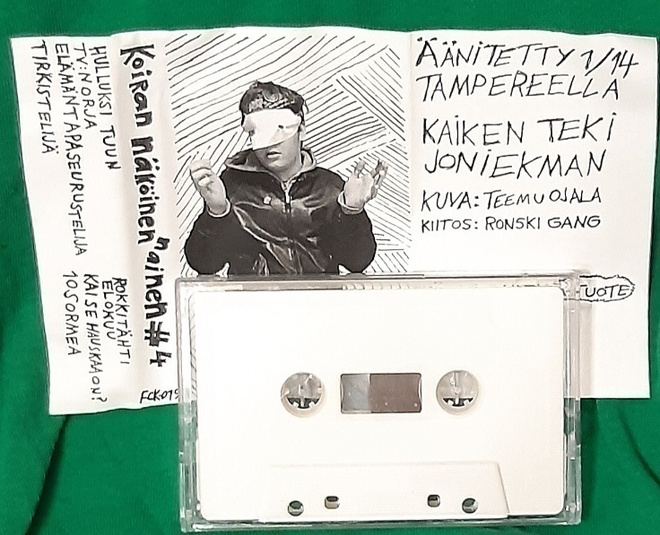 HULLUKSI TUUN
TV:NORJA
ELÄMÄNTAPASEURUSTELIJA
TIRKISTELIJÄ
ROKKITÄHTI
ELOKUU
KAI SE HAUSKAA ON?
10 SORMEA
Koiran näköinen "ainen #4
ÄÄNITETTY 1/14
TAMPEREELLA
KAIKEN TEKI
JONI EKMAN
KUVA: TEEMU OJALA
KIITOS: RONSKI GANG
TUOTE